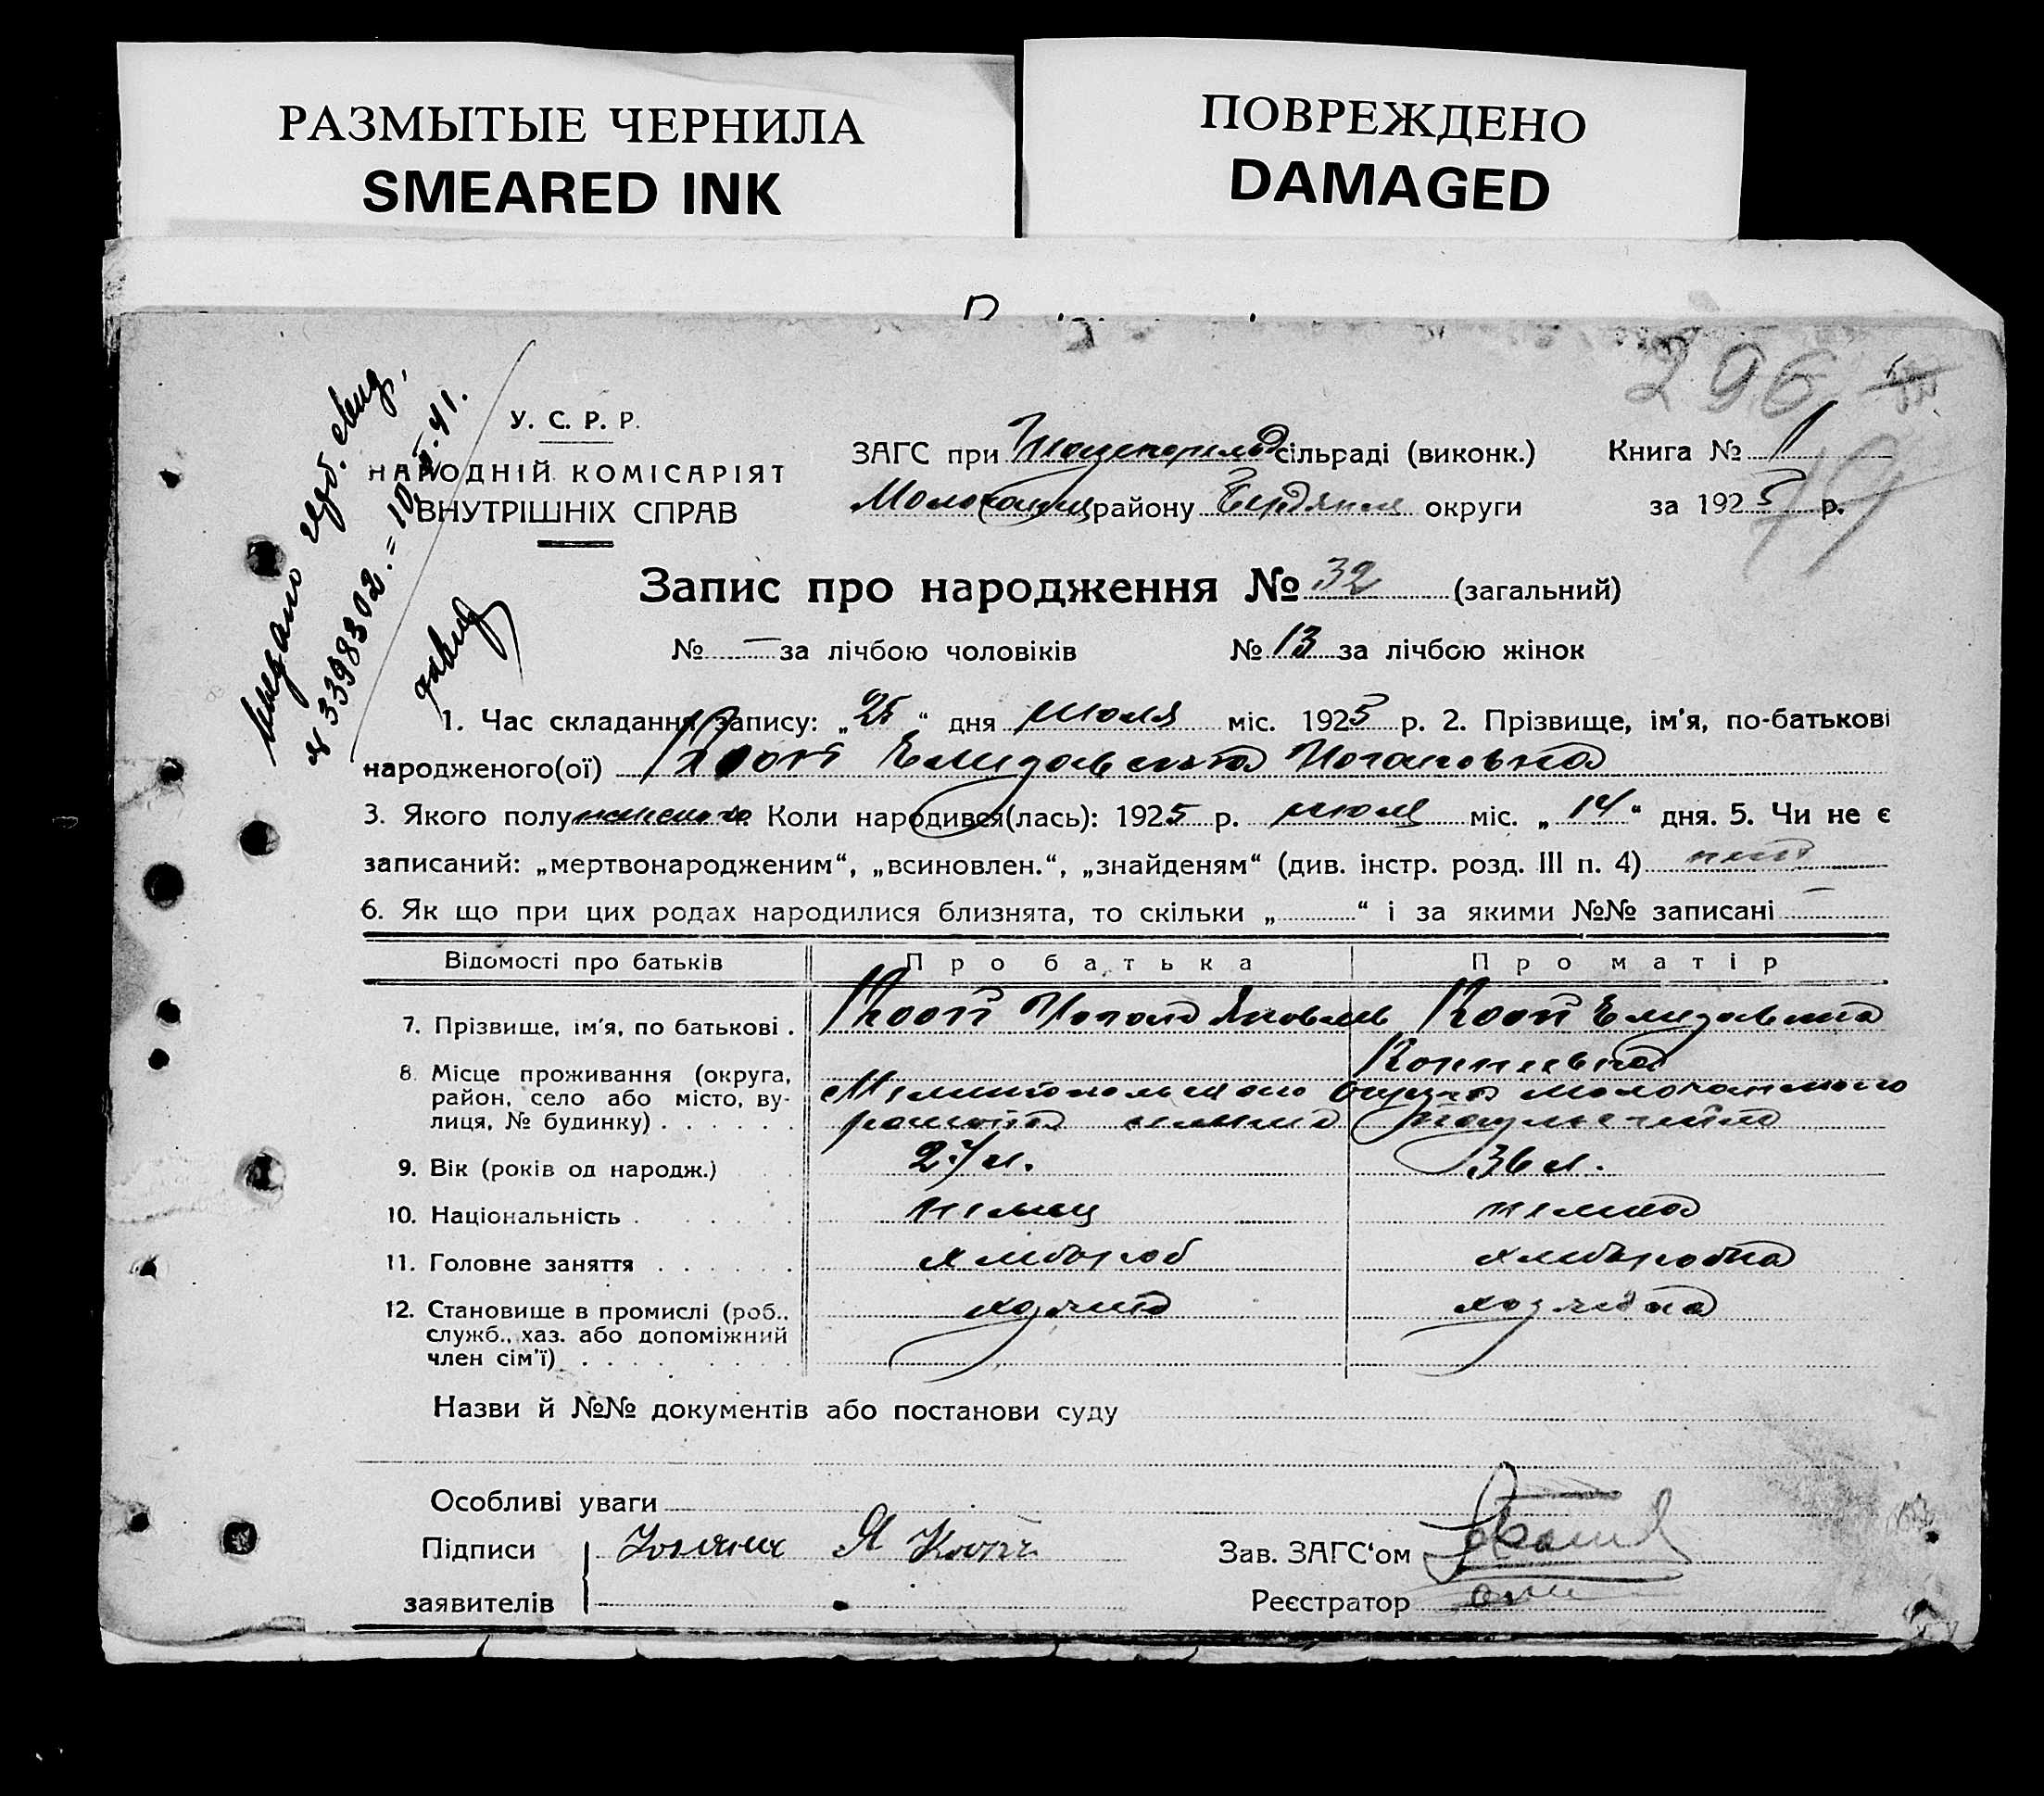 РАЗМЫТЫЕ ЧЕРНИЛА
SMEARED INK
ПОВРЕЖДЕНО
DAMAGED
296
79
№ 339830
У. С. Р. Р.
НАРОДНІЙ КОМІСАРІЯТ
ВНУТРІШНІХ СПРАВ
ЗАГС при сільраді (виконк.) Книга № 1
району округи за 1925 р.
Запис про народження № 32 (загальний)
№ — за лічбою чоловіків № 13 за лічбою жінок
1. Час складання запису: „25“ дня июля міс. 1925 р. 2. Прізвище, ім'я, по-батькові
народженого(ої) Кооп Елизавета Иогановна
3. Якого полу женского Коли народився(лась): 1925 р. июля міс. „14“ дня. 5. Чи не є
записаний: „мертвонародженим“, „всиновлен.“, „знайденям“ (див. інстр. розд. III п. 4) нет
6. Як що при цих родах народилися близнята, то скільки „ “ і за якими №№ записані —
Відомості про батьків Про батька Про матір
7. Прізвище, ім'я, по батькові . Кооп Иоган Яковлев Кооп Елизавета
Корнеевна
8. Місце проживання (округа, район, село або місто, вулиця, № будинку) Мелитопольского округа Молочанского
района
9. Вік (років од народж.) 27 л. 36 л.
10. Національність немец немка
11. Головне заняття хлебороб хлеборобка
12. Становище в промислі (роб., служб., хаз. або допоміжний член сім'ї) хозяин хозяйка
Назви й №№ документів або постанови суду
Особливі уваги
Підписи
заявителів
Зав. ЗАГС'ом
Реєстратор